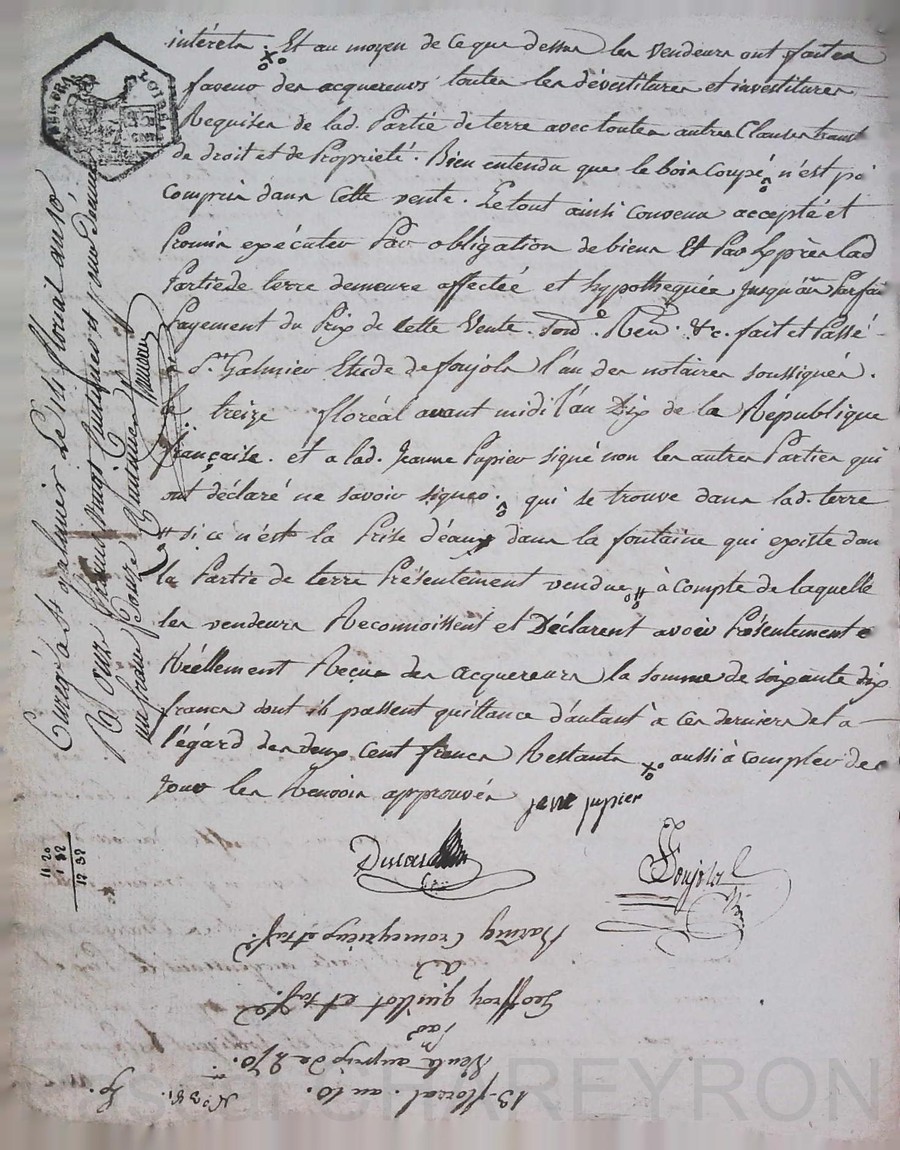 intérets. Et au moyen de ce que dessus les vendeurs ont fait en
faveur des acquereurs toutes les dévestitures et investitures
Requises de lad. Partie de terre avec toutes autres Clauses
de droit et de Propriété. Bien entendu que le bois coupé n'est pas
compris dans Cette vente. Le tout ainsi convenu accepté et
Promis exécuter Par obligation de biens Et Par Exprès lad
Partie de terre demeure affectée et hypothequée jusqu'au Parfait
Payement du Prix de Cette Vente. &c. fait et Passé
St. Galmier Etude de Soujols l'un des notaires soussignés.
le treize floréal avant midi l'an Dix de la République
française. et a lad. Jeanne Pupier signé non les autres Parties qui
ont déclaré ne savoir signer. qui se trouve dans lad. terre
# si ce n'est la Prise d'eaux dans la fontaine qui existe dans
la Partie de terre Présentement vendue # à compte de laquelle
les vendeurs Reconnoissent et Déclarent avoir Présentement &
Réellement Reçue des acquereurs la somme de soixante dix
francs dont ils passent quittance d'autant à ces derniers et a
l'égard des deux cent francs Restants aussi à compter de ce
jour les Renvois approuvés jane pupier
Soujols
Enreg.é à St galmier Le floreal an 10
un franc
11 20
1 82
13-floreal. an 10.
Vente au prix de 270.
Par
Geoffroy guillot et
a